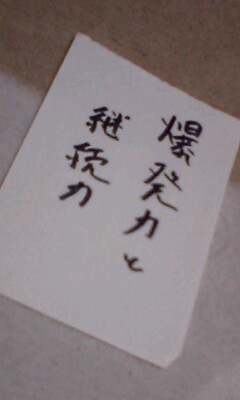 爆発力と
継続力